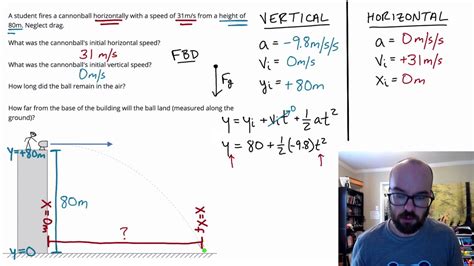 A student fires a cannonball horizontally with a speed of 31m/s from a height of
80m. Neglect drag.
What was the cannonball's initial horizontal speed?
31 m/s
What was the cannonball's initial vertical speed?
0m/s
How long did the ball remain in the air?
How far from the base of the building will the ball land (measured along the
ground)?
FBD
Fg
y=+80m
80m
y=0
x=0m
?
x=xf
VERTICAL
a = -9.8m/s/s
vi = 0m/s
yi = +80m
y = yi + vit + 1/2 at²
0
y = 80 + 1/2 (-9.8)t²
HORIZONTAL
a = 0m/s/s
vi = +31m/s
xi = 0m